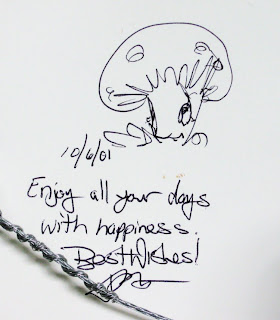 10/6/01
Enjoy all your days
with happiness.
Best Wishes!